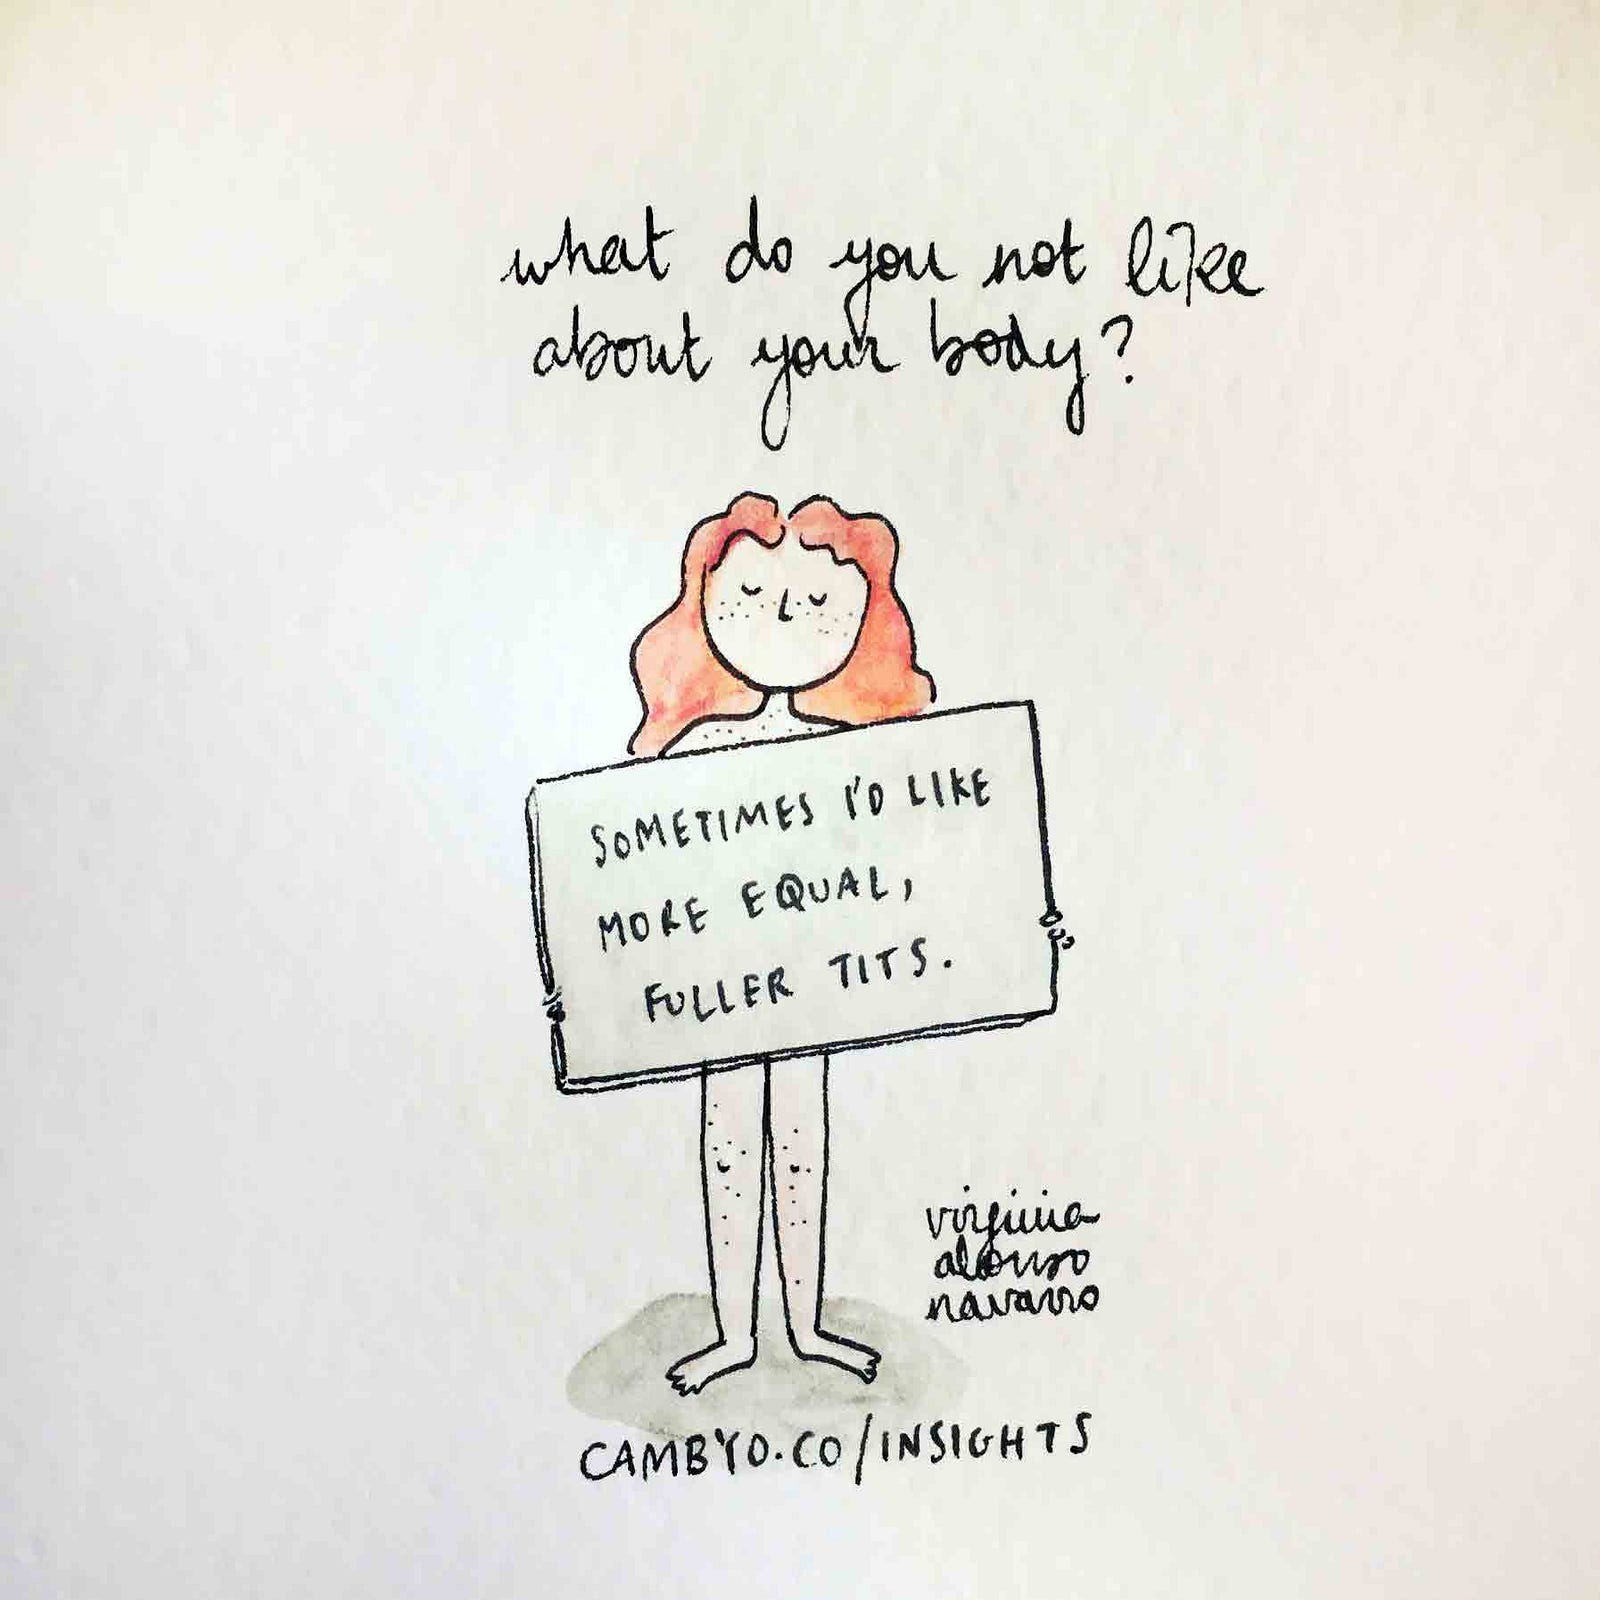 what do you not like
about your body?
SOMETIMES I'D LIKE
MORE EQUAL,
FULLER TITS.
virginia
alonso
navarro
CAMBYO.CO/INSIGHTS